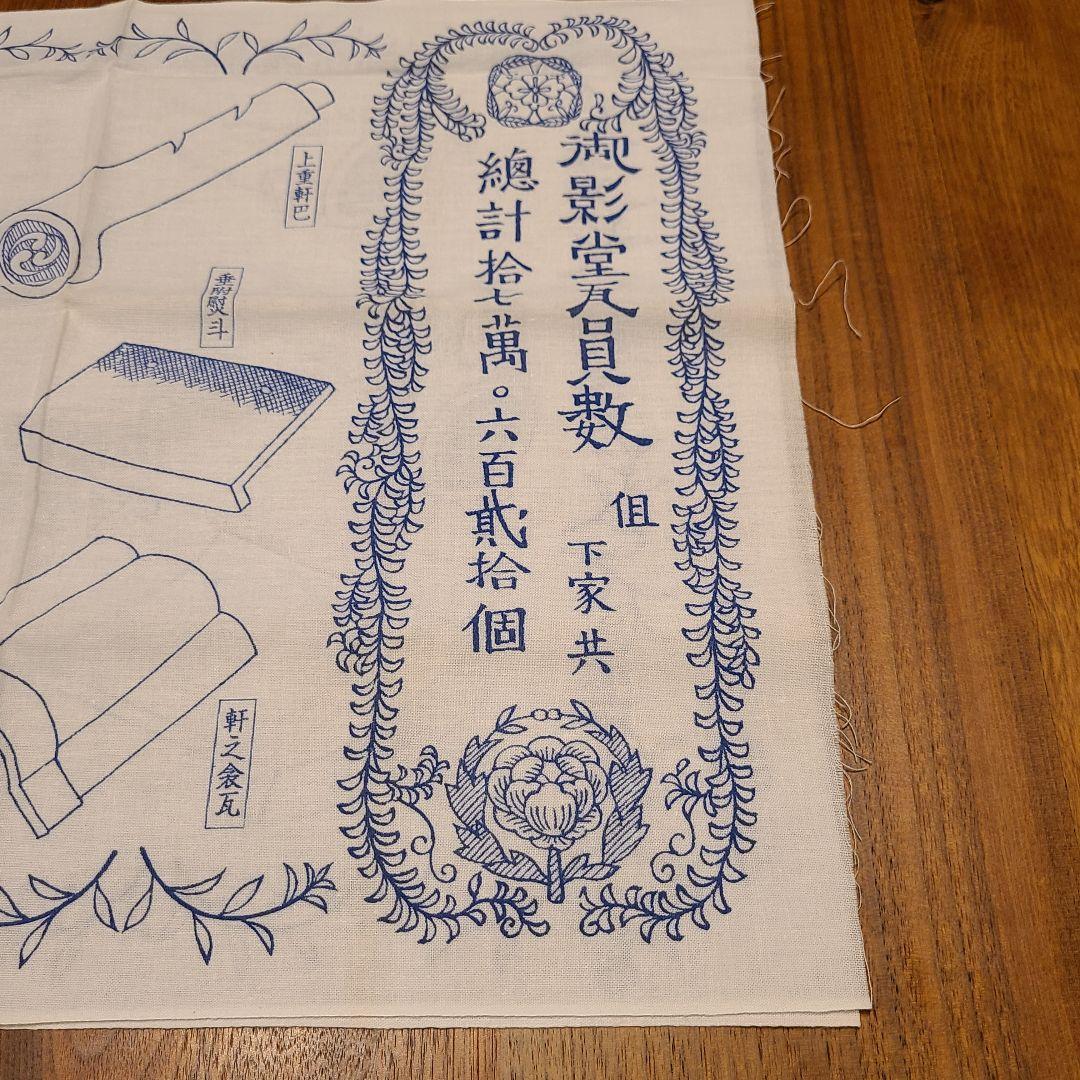 御影堂瓦員數
伹
下家共
總計拾七萬。六百貳拾個
上重軒巴
熨斗
軒之衾瓦